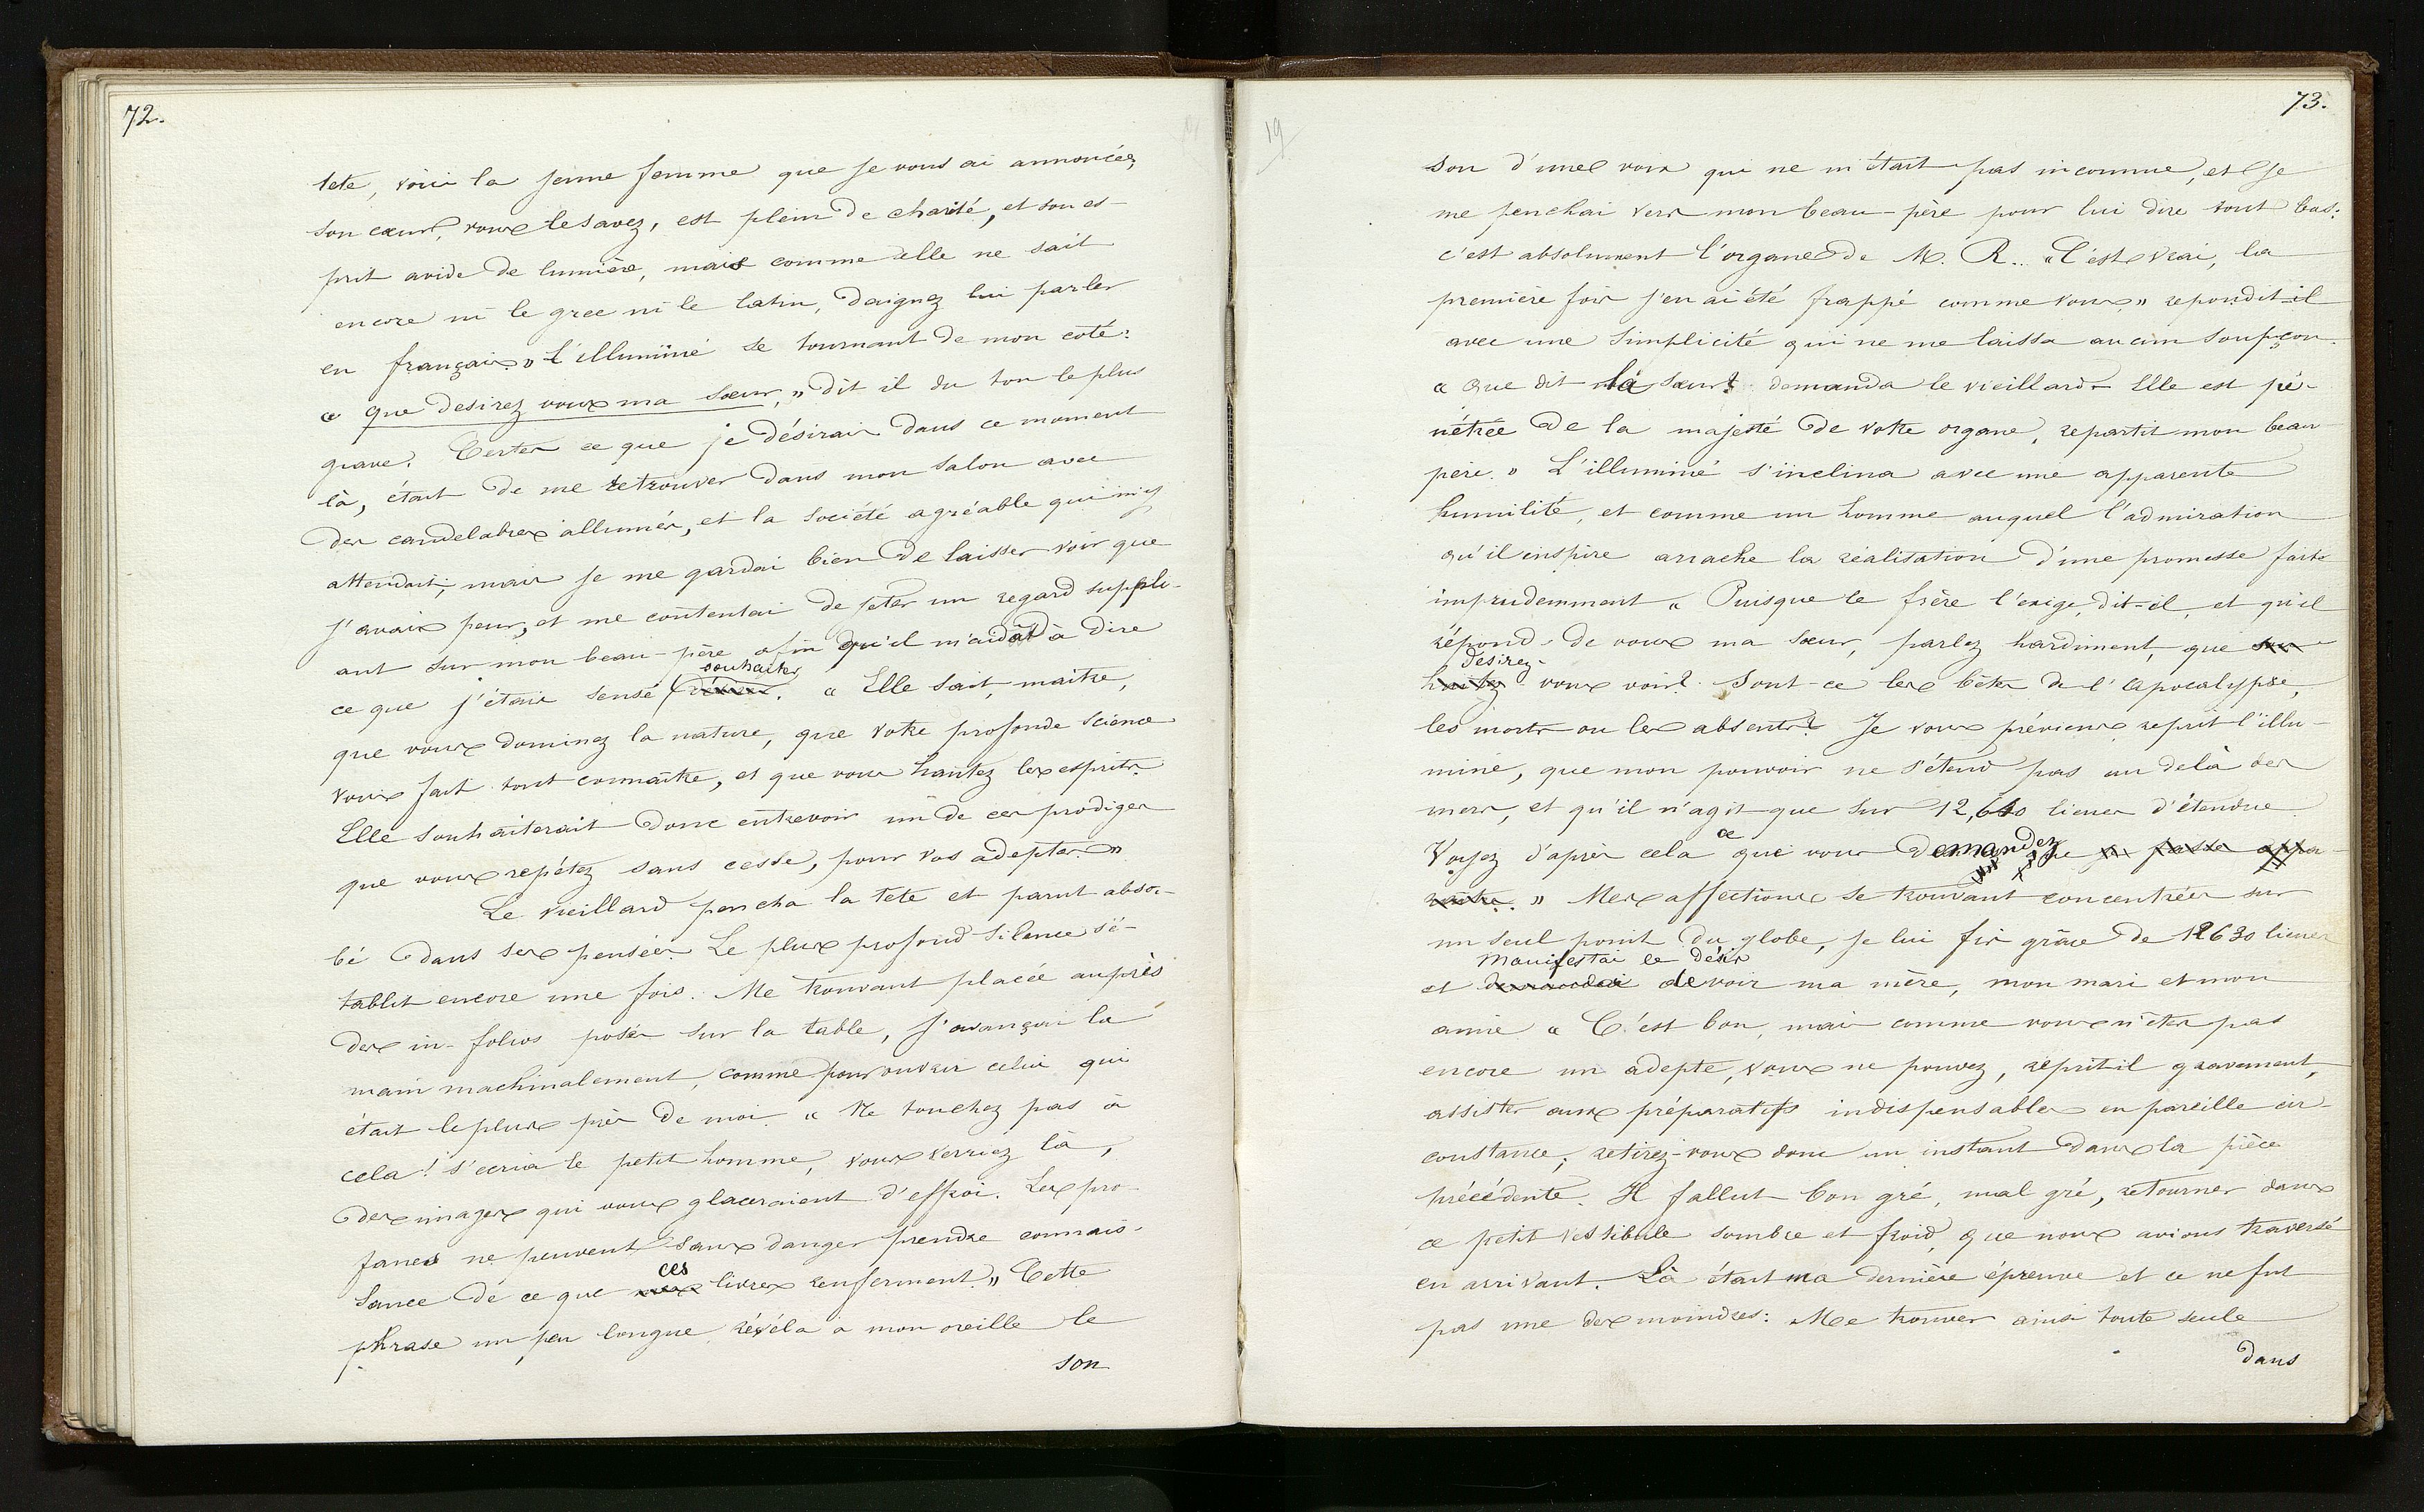 72.
tete, voici la jeune femme que je vous ai annoncée,
son cœur, vous le savez, est plein de charité, et son es-
prit avide de lumière, mais comme elle ne sait
encore ni le grec ni le latin, daignez lui parler
en français » L'illuminé se tournant de mon coté:
« que desirez vous ma sœur, » dit il du ton le plus
grave. Certes ce que je désirais dans ce moment
là, était de me retrouver dans mon salon avec
des candelabres allumés, et la société agréable qui m'y
attendait; mais je me gardai bien de laisser voir que
j'avais peur, et me contentai de jeter un regard suppli-
ant sur mon beau-père afin qu'il m'aidât à dire
souhaiter
ce que j'étais sensé désirer. « Elle sait, maitre,
que vous dominez la nature, que votre profonde science
vous fait tout connaître, et que vous hantez les esprits.
Elle souhaiterait donc entrevoir un de ces prodiges
que vous repétez sans cesse, pour vos adeptes. »
Le vieillard pencha la tete et parut absor-
bé dans ses pensées. Le plus profond silence s'é-
tablit encore une fois. Me trouvant placée auprès
des in-folios posés sur la table, j'avançai la
main machinalement, comme pour ouvrir celui qui
était le plus près de moi. « Ne touchez pas à
cela! s'ecria le petit homme, vous verriez là,
des images qui vous glaceraient d'effroi. Les pro-
fanes ne peuvent sans danger prendre connais-
ces
sance de ce que livres renferment. » Cette
phrase un peu longue, révéla à mon oreille le
son
19
73.
son d'une voix qui ne m'était pas inconnue, et je
me penchai vers mon beau-père pour lui dire tout bas:
c'est absolument l'organe de M. R.. « C'est vrai, la
première fois j'en ai été frappé comme vous, » repondit-il
avec une simplicité qui ne me laissa aucun soupçon.
« Que dit la sœur? demanda le vieillard - Elle est pé-
nétrée de la majesté de votre organe, repartit mon beau
père. » L'illuminé s'inclina avec une apparente
humilité, et comme un homme auquel l'admiration
qu'il inspire arrache la réalisation d'une promesse faite
imprudemment « Puisque le frère l'exige, dit-il, et qu'il
répond de vous ma sœur, parlez hardiment, que sou
desirez-
haitez vous voir? Sont-ce les bêtes de l'Apocalypse,
les morts ou les absents? Je vous préviens, reprit l'illu-
miné, que mon pouvoir ne s'étend pas au delà des
mers, et qu'il n'agit que sur 12,630 lieues d'étendue.
ce
Voyez d'après cela que vous demandez que je fasse appa-
raître. » Mes affections se trouvant concentrées sur
un seul point du globe, je lui fis grâce de 12630 lieues
manifestai le désir
et demandai de voir ma mère, mon mari et mon
amie « C'est bon, mais comme vous n'êtes pas
encore un adepte, vous ne pouvez, reprit-il gravement,
assister aux préparatifs indispensables en pareille cir-
constance; retirez-vous donc un instant dans la pièce
précédente. Il fallut bon gré, mal gré, retourner dans
ce petit vestibule sombre et froid, que nous avions traversé
en arrivant. Là était ma dernière épreuve et ce ne fut
pas une des moindres: Me trouver ainsi toute seule
dans